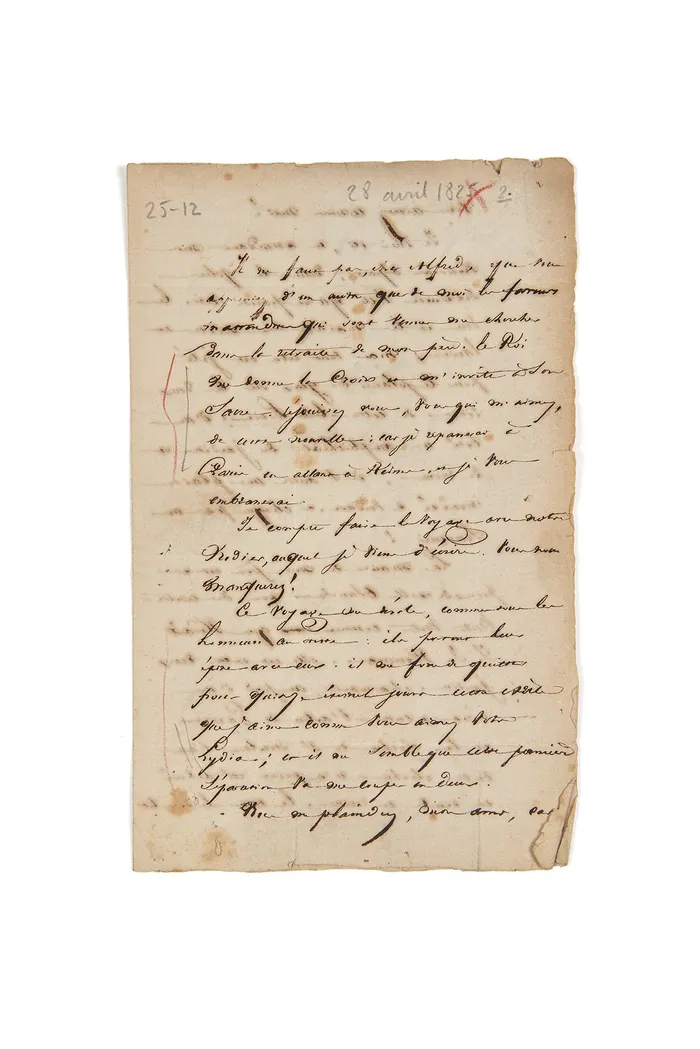 25-12
28 avril 1825 2.
Il ne faut pas, cher Alfred, que vous
appreniez d'un autre que de moi les faveurs
inattendues qui sont venues me chercher
dans la retraite de mon père. le Roi
me donne la Croix et m'invite à son
Sacre. Réjouissez vous, vous qui m'aimez,
de cette nouvelle ; car je repasserai à
Paris en allant à Reims, et je vous
embrasserai.
Je compte faire le voyage avec notre
Nodier, auquel je viens d'écrire. Vous nous
manquerez !
Ce voyage me comme tous les
au reste : ils portent leur
épine avec eux. il me faut quitter
pour quinze éternels jours cette Adèle
que j'aime comme vous aimez votre
Lydia ; et il me semble que cette première
séparation va me couper en deux.
Vous me plaindrez, mon ami, car